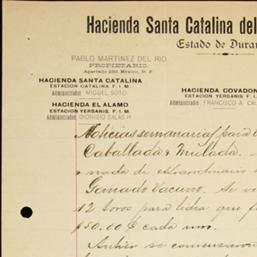 Hacienda Santa Catalina del
Estado de Duran
PABLO MARTINEZ DEL RIO
PROPIETARIO.
Apartado 251. México, D. F.
HACIENDA SANTA CATALINA
ESTACION CATALINA F. I. M.
Administrador MIGUEL SOTO.
HACIENDA EL ALAMO
ESTACION YERBANIS F. I. M.
Administrador DIONISIO SALAS H.
HACIENDA COVADON
ESTACION YERBANIS, F. I.
Administrador FRANCISCO A. CAL
Noticias semanarias para la
Caballada y Mulada.
nada de extraordinario
Ganado Vacuno. Se ve
12 toros para lidia que f
$50.00 ¢ cada uno.
Antier se comenzaron